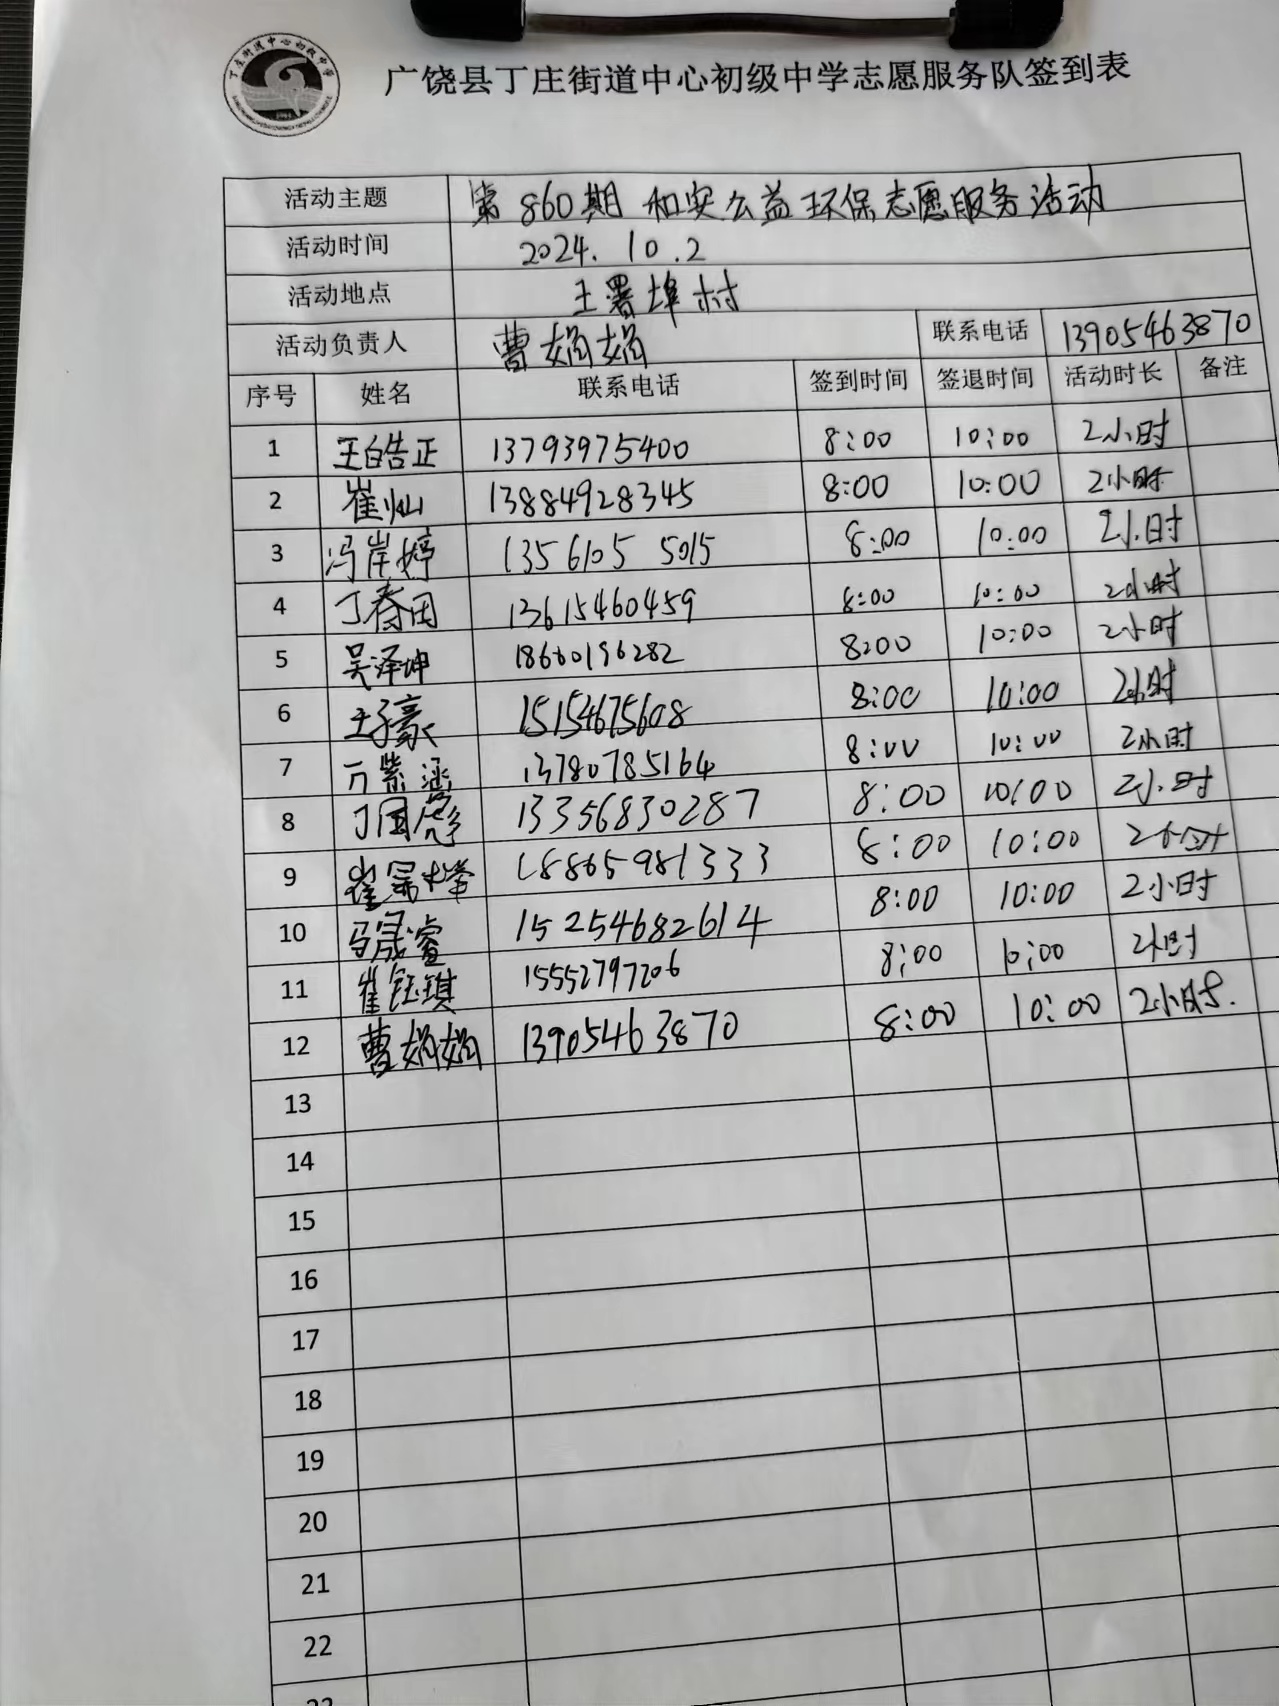 丁庄街道中心初级中学
广饶县丁庄街道中心初级中学志愿服务队签到表
活动主题 第860期 和安公益环保志愿服务活动
活动时间 2024.10.2
活动地点 王署埠村
活动负责人 曹娟娟 联系电话 13905463870
序号 姓名 联系电话 签到时间 签退时间 活动时长 备注
1 王皓正 13793975400 8:00 10:00 2小时
2 崔灿 13884928345 8:00 10:00 2小时
3 冯岸婷 1356105 5015 8:00 10:00 2小时
4 丁春田 13615460459 8:00 10:00 2小时
5 吴泽坤 18660196282 8:00 10:00 2小时
6 王子豪 15154675608 8:00 10:00 2小时
7 万紫涵 13780785164 8:00 10:00 2小时
8 丁国彪 13356830287 8:00 10:00 2小时
9 崔 18865981333 8:00 10:00 2小时
10 马晟睿 15254682614 8:00 10:00 2小时
11 崔钰琪 15552797206 8:00 10:00 2小时
12 曹娟娟 13905463870 8:00 10:00 2小时.
13
14
15
16
17
18
19
20
21
22
23